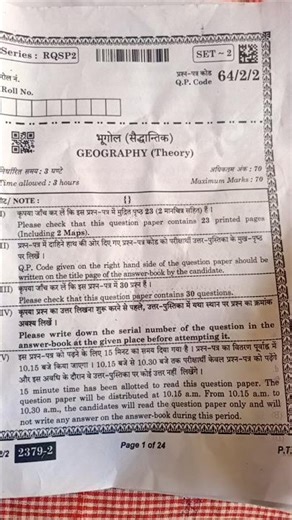 Series : RQSP2
SET ~ 2
रोल नं.
Roll No.
प्रश्न-पत्र कोड
Q.P. Code 64/2/2
भूगोल (सैद्धान्तिक)
GEOGRAPHY (Theory)
निर्धारित समय : 3 घण्टे
अधिकतम अंक : 70
Time allowed : 3 hours
Maximum Marks : 70
NOTE :
I) कृपया जाँच कर लें कि इस प्रश्न-पत्र में मुद्रित पृष्ठ 23 (2 मानचित्र सहित) हैं।
Please check that this question paper contains 23 printed pages
(Including 2 Maps).
II) प्रश्न-पत्र में दाहिने हाथ की ओर दिए गए प्रश्न-पत्र कोड को परीक्षार्थी उत्तर-पुस्तिका के मुख-पृष्ठ
पर लिखें।
Q.P. Code given on the right hand side of the question paper should be
written on the title page of the answer-book by the candidate.
III) कृपया जाँच कर लें कि इस प्रश्न-पत्र में 30 प्रश्न हैं।
Please check that this question paper contains 30 questions.
IV) कृपया प्रश्न का उत्तर लिखना शुरू करने से पहले, उत्तर-पुस्तिका में यथा स्थान पर प्रश्न का क्रमांक
अवश्य लिखें।
Please write down the serial number of the question in the
answer-book at the given place before attempting it.
V) इस प्रश्न-पत्र को पढ़ने के लिए 15 मिनट का समय दिया गया है। प्रश्न-पत्र का वितरण पूर्वाह्न में
10.15 बजे किया जाएगा। 10.15 बजे से 10.30 बजे तक परीक्षार्थी केवल प्रश्न-पत्र को पढ़ेंगे
और इस अवधि के दौरान वे उत्तर-पुस्तिका पर कोई उत्तर नहीं लिखेंगे।
15 minute time has been allotted to read this question paper. The
question paper will be distributed at 10.15 a.m. From 10.15 a.m. to
10.30 a.m., the candidates will read the question paper only and will
not write any answer on the answer-book during this period.
2/2 2379-2
Page 1 of 24
P.T.